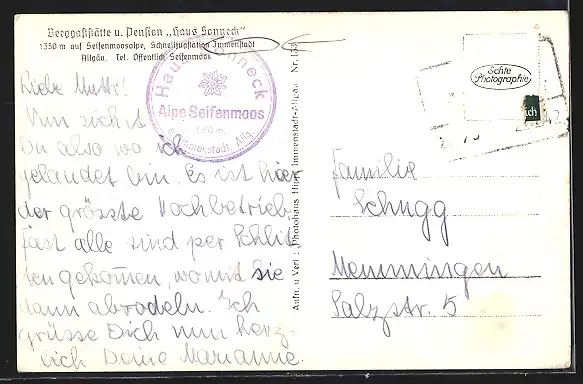 Berggaststätte u. Pension „Haus Sonneck"
1350 m auf Seifenmoosalpe, Schnellzugstation Immenstadt
Allgäu. Tel. Öffentlich Seifenmoos
Haus Sonneck
Alpe Seifenmoos
Immenstadt, Allg.
Liebe Mutti!
Nun siehst
Du also wo ich
gelandet bin. Es ist hier
der grösste Hochbetrieb
fast alle sind per Schlit-
ten gekommen, womit sie
dann abrodeln. Ich
grüsse Dich nun herz-
lich Deine Marianne.
Aufn. u Verl.: Photohaus Hipp, Immenstadt-Allgäu. Nr. 153
Echte
Photographie
Familie
Schugg
Memmingen
Salzstr. 5